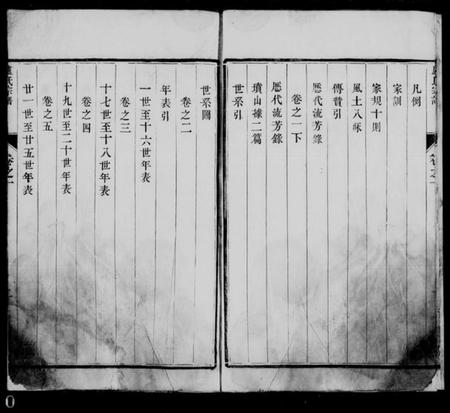 凡例
家訓
家規十則
風土八咏
傳贊引
歷代流芳錄
卷之一下
歷代流芳錄
墳山據二篇
世系引
世系圖
卷之二
年表引
一世至十六世年表
卷之三
十七世至十八世年表
卷之四
十九世至二十世年表
卷之五
廿一世至廿五世年表
氏宗譜
卷之一